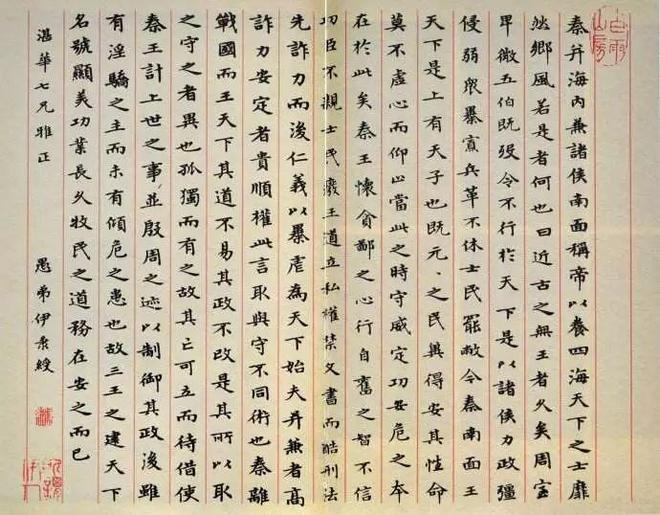 白雨山房
秦并海內兼諸侯南面稱帝以養四海天下之士靡
然鄉風若是者何也曰近古之無王者久矣周室
卑微五伯既歿令不行於天下是以諸侯力政彊
侵弱眾暴寡兵革不休士民罷敝今秦南面王
天下是上有天子也既元〻之民冀得安其性命
莫不虛心而仰上當此之時守威定功安危之本
在於此矣秦王懷貪鄙之心行自奮之智不信
功臣不親士民廢王道立私權禁文書而酷刑法
先詐力而後仁義以暴虐為天下始夫并兼者高
詐力安定者貴順權此言取與守不同術也秦離
戰國而王天下其道不易其政不改是其所以取
之守之者異也孤獨而有之故其亡可立而待借使
秦王計上世之事並殷周之迹以制御其政後雖
有淫驕之主而未有傾危之患也故三王之建天下
名號顯美功業長久牧民之道務在安之而已
湛華七兄雅正
愚弟伊秉綬